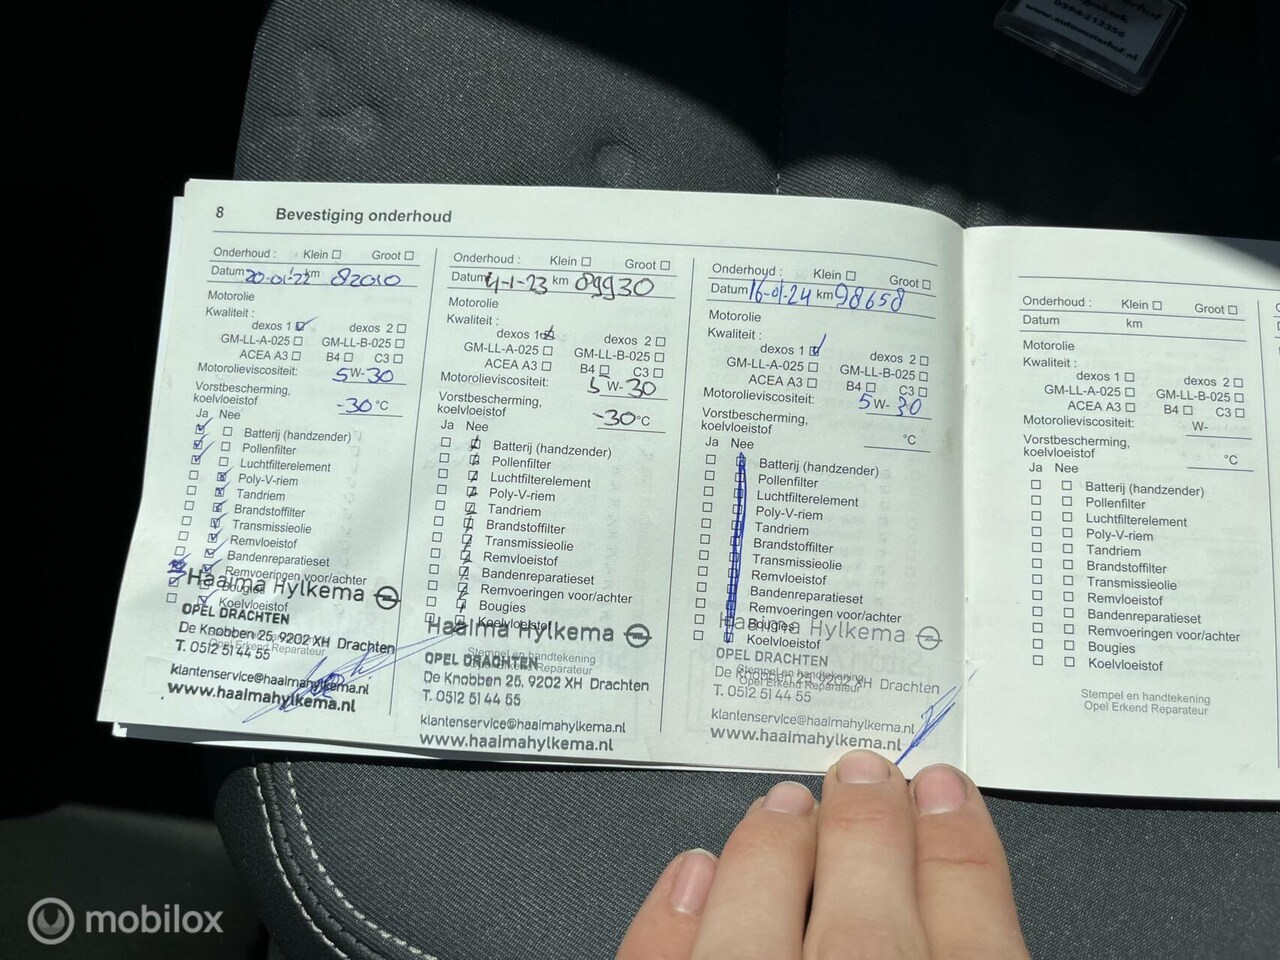 0596-212356
8 Bevestiging onderhoud
Onderhoud : Klein ☐ Groot ☐
Datum 20-01-22 km 82010
Motorolie
Kwaliteit :
dexos 1 ☑ dexos 2 ☐
GM-LL-A-025 ☐ GM-LL-B-025 ☐
ACEA A3 ☐ B4 ☐ C3 ☐
Motorolieviscositeit: 5W-30
Vorstbescherming,
koelvloeistof -30 °C
Ja Nee
Batterij (handzender)
Pollenfilter
Luchtfilterelement
Poly-V-riem
Tandriem
Brandstoffilter
Transmissieolie
Remvloeistof
Bandenreparatieset
Remvoeringen voor/achter
Bougies
Koelvloeistof
Haaima Hylkema
OPEL DRACHTEN
De Knobben 25, 9202 XH Drachten
Opel Erkend Reparateur
T. 0512 51 44 55
klantenservice@haaimahylkema.nl
www.haaimahylkema.nl
Onderhoud : Klein ☐ Groot ☐
Datum 4-1-23 km 89930
Motorolie
Kwaliteit :
dexos 1 ☑ dexos 2 ☐
GM-LL-A-025 ☐ GM-LL-B-025 ☐
ACEA A3 ☐ B4 ☐ C3 ☐
Motorolieviscositeit: 5W-30
Vorstbescherming,
koelvloeistof -30 °C
Ja Nee
Batterij (handzender)
Pollenfilter
Luchtfilterelement
Poly-V-riem
Tandriem
Brandstoffilter
Transmissieolie
Remvloeistof
Bandenreparatieset
Remvoeringen voor/achter
Bougies
Koelvloeistof
Haaima Hylkema
OPEL DRACHTEN
Stempel en handtekening
Opel Erkend Reparateur
De Knobben 25, 9202 XH Drachten
T. 0512 51 44 55
klantenservice@haaimahylkema.nl
www.haaimahylkema.nl
Onderhoud : Klein ☐ Groot ☐
Datum 16-01-24 km 98658
Motorolie
Kwaliteit :
dexos 1 ☑ dexos 2 ☐
GM-LL-A-025 ☐ GM-LL-B-025 ☐
ACEA A3 ☐ B4 ☐ C3 ☐
Motorolieviscositeit: 5W-30
Vorstbescherming,
koelvloeistof °C
Ja Nee
Batterij (handzender)
Pollenfilter
Luchtfilterelement
Poly-V-riem
Tandriem
Brandstoffilter
Transmissieolie
Remvloeistof
Bandenreparatieset
Remvoeringen voor/achter
Bougies
Koelvloeistof
Haaima Hylkema
OPEL DRACHTEN
Stempel en handtekening
Opel Erkend Reparateur
De Knobben 25, 9202 XH Drachten
T. 0512 51 44 55
klantenservice@haaimahylkema.nl
www.haaimahylkema.nl
Onderhoud : Klein ☐ Groot ☐
Datum km
Motorolie
Kwaliteit :
dexos 1 ☐ dexos 2 ☐
GM-LL-A-025 ☐ GM-LL-B-025 ☐
ACEA A3 ☐ B4 ☐ C3 ☐
Motorolieviscositeit: W-
Vorstbescherming,
koelvloeistof °C
Ja Nee
☐ ☐ Batterij (handzender)
☐ ☐ Pollenfilter
☐ ☐ Luchtfilterelement
☐ ☐ Poly-V-riem
☐ ☐ Tandriem
☐ ☐ Brandstoffilter
☐ ☐ Transmissieolie
☐ ☐ Remvloeistof
☐ ☐ Bandenreparatieset
☐ ☐ Remvoeringen voor/achter
☐ ☐ Bougies
☐ ☐ Koelvloeistof
Stempel en handtekening
Opel Erkend Reparateur
mobilox